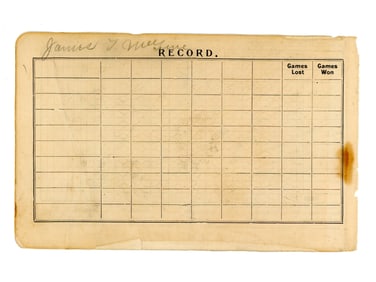 James T. 
RECORD.
Games Lost
Games Won